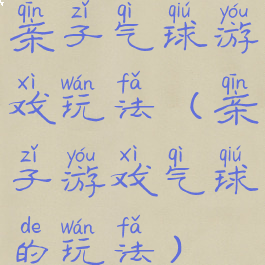 qīn zǐ qì qiú yóu
亲子气球游
xì wán fǎ qīn
戏玩法（亲
zǐ yóu xì qì qiú
子游戏气球
de wán fǎ
的玩法）